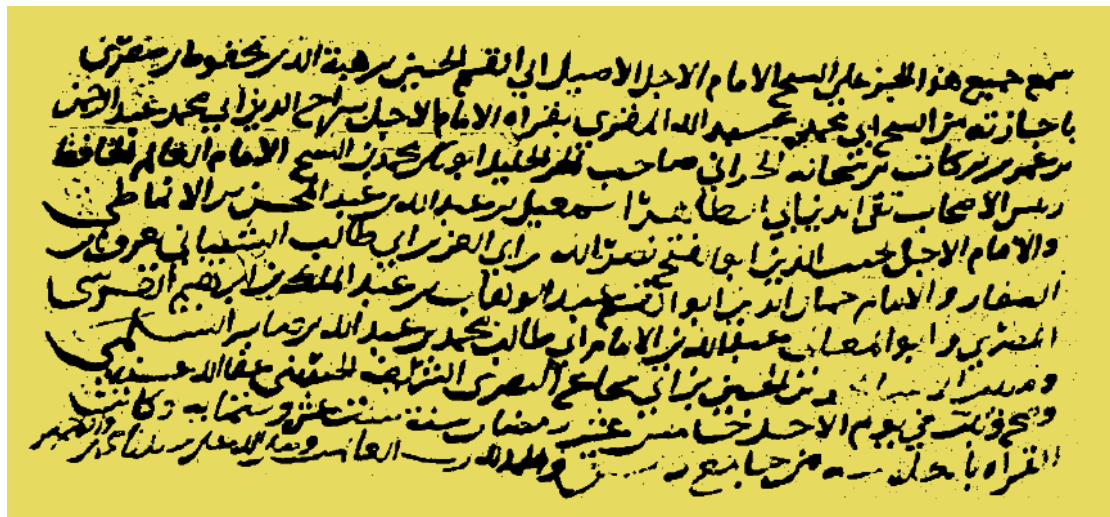 سمع جميع هذا الجزء على الشيح الامام الاجل الاصيل ابي القسم الحسين بن هبة الله بن محفوظ بن صصرى
باجازته من الشيح ابي محمد عبد الله المصري بقراه الامام الاجل سراج الدين ابي محمد عبد الرحمن
بن عمر بن بركات بن شحانه الحراني صاحب ابو بكر محمد بن الشيح الامام العالم الحافظ
رىىس الاصحاب تقي الدين ابي الطاهر اسمعيل بن عبد الله بن عبد المحسن بن الانماطي
والامام الاجل نجيب الدين ابو الفتح نصر الله بن ابي العز بن ابي طالب الشيباني عرف بابن
الصفار والامام جمال الدين ابو عبد الوهاب بن عبد الملك بن ابرهيم القرشي
المصري وابو المعالي عبد الله بن الامام ابي طالب محمد بن عبد الله بن صابر السلمي
بن الحسين بن ابي البصري الشريف الحسيني عفا الله عنه
وصح وثبت في يوم الاحد خامس عشر رمضان سنة ست عشر وستمايه وكانت
القراه من جامع دمشق والحمد لله رب العالمين وصلى الله على